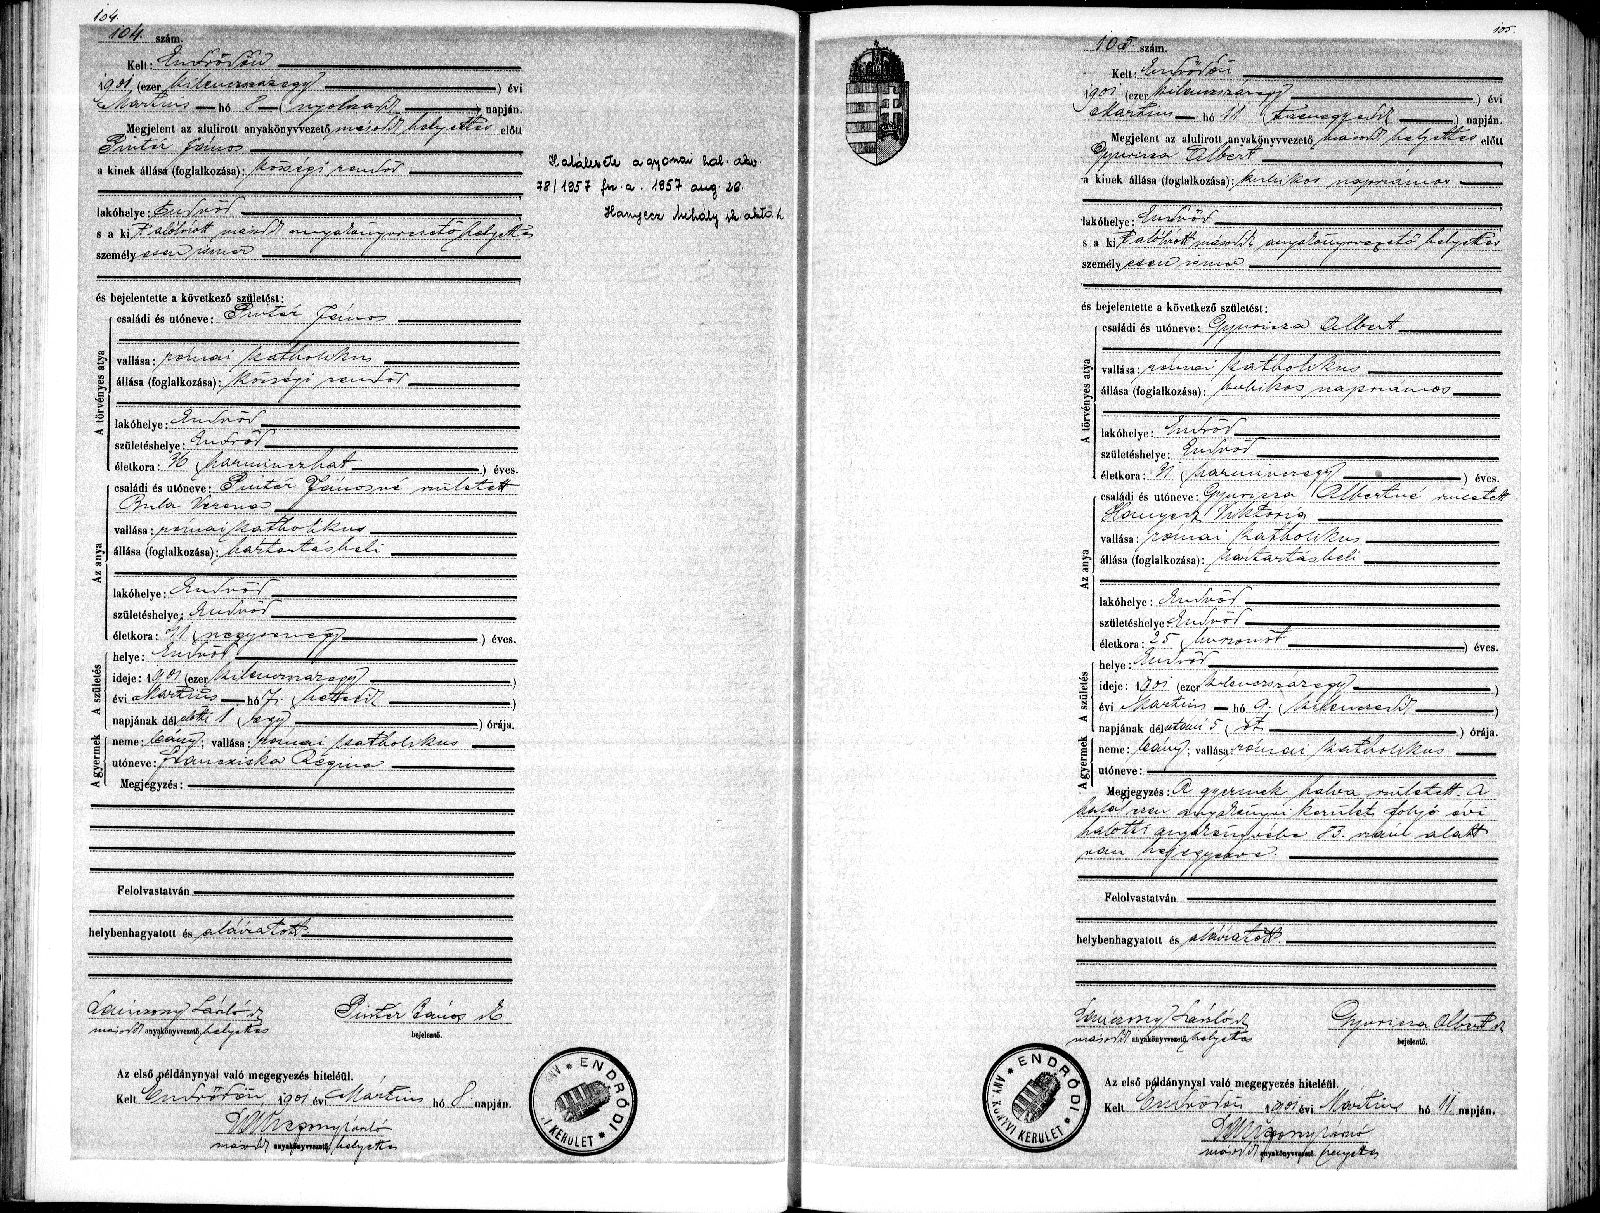 104.
104. szám.
Kelt: Endrődön
1901 (ezer kilenczszázegy) évi
Martius hó 8 (nyolczadik) napján.
Megjelent az alulirott anyakönyvvezető másodk helyettes előtt
Pintér János
a kinek állása (foglalkozása): községi rendőr
lakóhelye: Endrőd
s a kit alólirott másodk anyakönyvvezető helyettes
személyesen ismer
és bejelentette a következő születést:
A törvényes atya
családi és utóneve: Pintér János
vallása: római katholikus
állása (foglalkozása): községi rendőr
lakóhelye: Endrőd
születéshelye: Endrőd
életkora: 36 (harminczhat) éves.
Az anya
családi és utóneve: Pintér Jánosné született
Bula Verona
vallása: római katholikus
állása (foglalkozása): háztartásbeli
lakóhelye: Endrőd
születéshelye: Endrőd
életkora: 41 (negyvenegy) éves.
A születés
helye: Endrőd
ideje: 1901 (ezer kilenczszázegy)
évi Martius hó 7. (hetedik)
napjának délelőtti 1 (egy) órája.
A gyermek
neme: leány; vallása: római katholikus
utóneve: Francziska Regina
Megjegyzés:
Felolvastatván
helybenhagyatott és aláiratott.
László
másodk anyakönyvvezető helyettes
Pintér János
bejelentő.
Az első példánynyal való megegyezés hiteléül.
Kelt Endrődön, 1901 évi Mártius hó 8 napján.
másodk anyakönyvvezető helyettes
ENDRŐDI ANYAKÖNYVI KERÜLET
Halálesete a gyomai hal. akv.
78/1957 fsz. a. 1957 aug 26.
Hanyecz Mihály
105.
105 szám.
Kelt: Endrődön
1901 (ezer kilenczszázegy) évi
Martius hó 11 (tizenegyedik) napján.
Megjelent az alulirott anyakönyvvezető másodk helyettes előtt
Gyuricza Albert
a kinek állása (foglalkozása): kubikos napszámos
lakóhelye: Endrőd
s a kit alólirott másodk anyakönyvvezető helyettes
személyesen ismer
és bejelentette a következő születést:
A törvényes atya
családi és utóneve: Gyuricza Albert
vallása: római katholikus
állása (foglalkozása): kubikos napszámos
lakóhelye: Endrőd
születéshelye: Endrőd
életkora: 31 (harminczegy) éves.
Az anya
családi és utóneve: Gyuricza Albertné született
Hanyecz Viktória
vallása: római katholikus
állása (foglalkozása): háztartásbeli
lakóhelye: Endrőd
születéshelye: Endrőd
életkora: 25 (huszonöt) éves.
A születés
helye: Endrőd
ideje: 1901 (ezer kilenczszázegy)
évi Martius hó 9. (kilenczedik)
napjának délutáni 5 (öt) órája.
A gyermek
neme: leány; vallása: római katholikus
utóneve:
Megjegyzés: A gyermek halva született. A
halál ezen anyakönyvi kerület folyó évi
halotti anyakönyvébe 83. szám alatt
van bejegyezve.
Felolvastatván
helybenhagyatott és aláiratott.
László
másodk anyakönyvvezető helyettes
Gyuricza Albert
bejelentő.
Az első példánynyal való megegyezés hiteléül.
Kelt Endrődön 1901 évi Mártius hó 11. napján.
másodk anyakönyvvezető helyettes
ENDRŐDI ANYAKÖNYVI KERÜLET